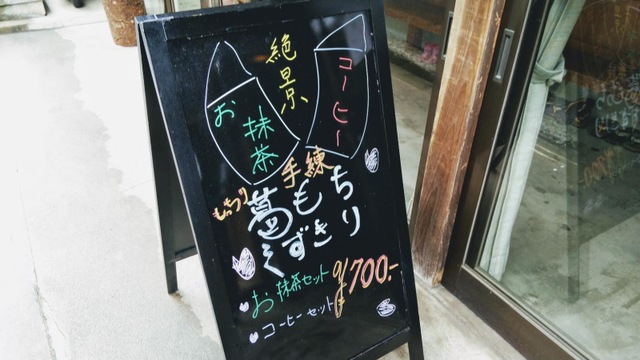 絶景
コーヒー
お抹茶
手練
葛もち
くずきり
お抹茶セット
コーヒーセット
¥700.-